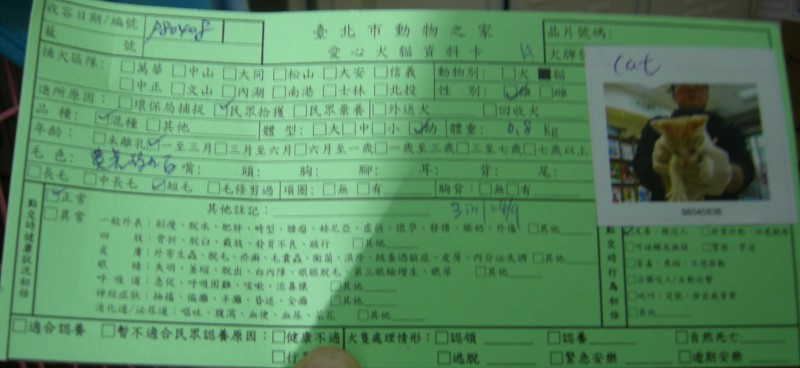 收容日期/編號 A80408
臺北市動物之家
晶片號碼:
籠 號
愛心犬貓資料卡
犬牌
捕犬區隊: □萬華 □中山 □大同 □松山 □大安 □信義 動物別: □犬 ■貓
□中正 □文山 □內湖 □南港 □士林 □北投 性 別: ☑雄 □雌
進所原因: □環保局捕捉 ☑民眾拾獲 □民眾棄養 □外送犬 □回收犬
品 種: ☑混種 □其他 體 型: □大 □中 □小 ☑幼 體重: 0.8 Kg
年齡: □未離乳 ☑一至三月 □三月至六月 □六月至一歲 □一歲至三歲 □三至七歲 □七歲以上
毛 色: 嘴: 頭: 胸: 腳: 耳: 背: 尾:
□長毛 □中長毛 ☑短毛 □毛修剪過 項圈: □無 □有 胸背: □無 □有
點交時健康狀況初估
☑正常 其他註記: 3 in 1 = 4/9
□異常 一般外表: 削瘦、脫水、肥胖、畸型、腫瘤、赫尼亞、虛弱、懷孕、發情、眼病、外傷 □其他
四 肢: 骨折、脫臼、截肢、發育不良、跛行 □其他
皮 膚: 外寄生蟲、脫毛、疥癬、毛囊蟲、黴菌、濕疹、跳蚤過敏症、皮屑、內分泌失調 □其他
眼 睛: 失明、萎縮、脫出、白內障、眼瞼脫毛、第三眼瞼增生、眼屎 □其他
呼 吸 道: 急促、呼吸困難、咳嗽、流鼻膿 □其他
神經症狀: 抽搐、偏癱、半癱、昏迷、全癱 □其他
消化道/泌尿道: 嘔吐、腹瀉、血便、血尿 □其他
cat
98040836
點交時行為初估
□其他
□適合認養 □暫不適合民眾認養原因: □健康不適 犬隻處理情形: □認領 □認養 □自然死亡
□行 □逃脫 □緊急安樂 □逾期安樂